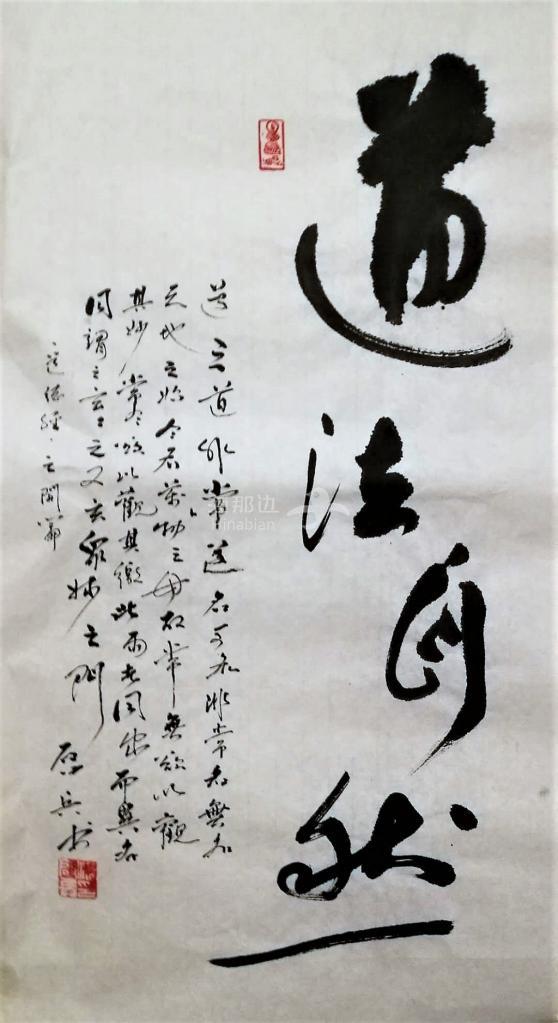 道法自然
道言道非常道名可名非常名無名
天地之始有名萬物之母故常無欲以觀
其妙常有欲以觀其徼此兩者同出而異名
同謂之玄玄之又玄眾妙之門
道德經
兵书
那边
inabian